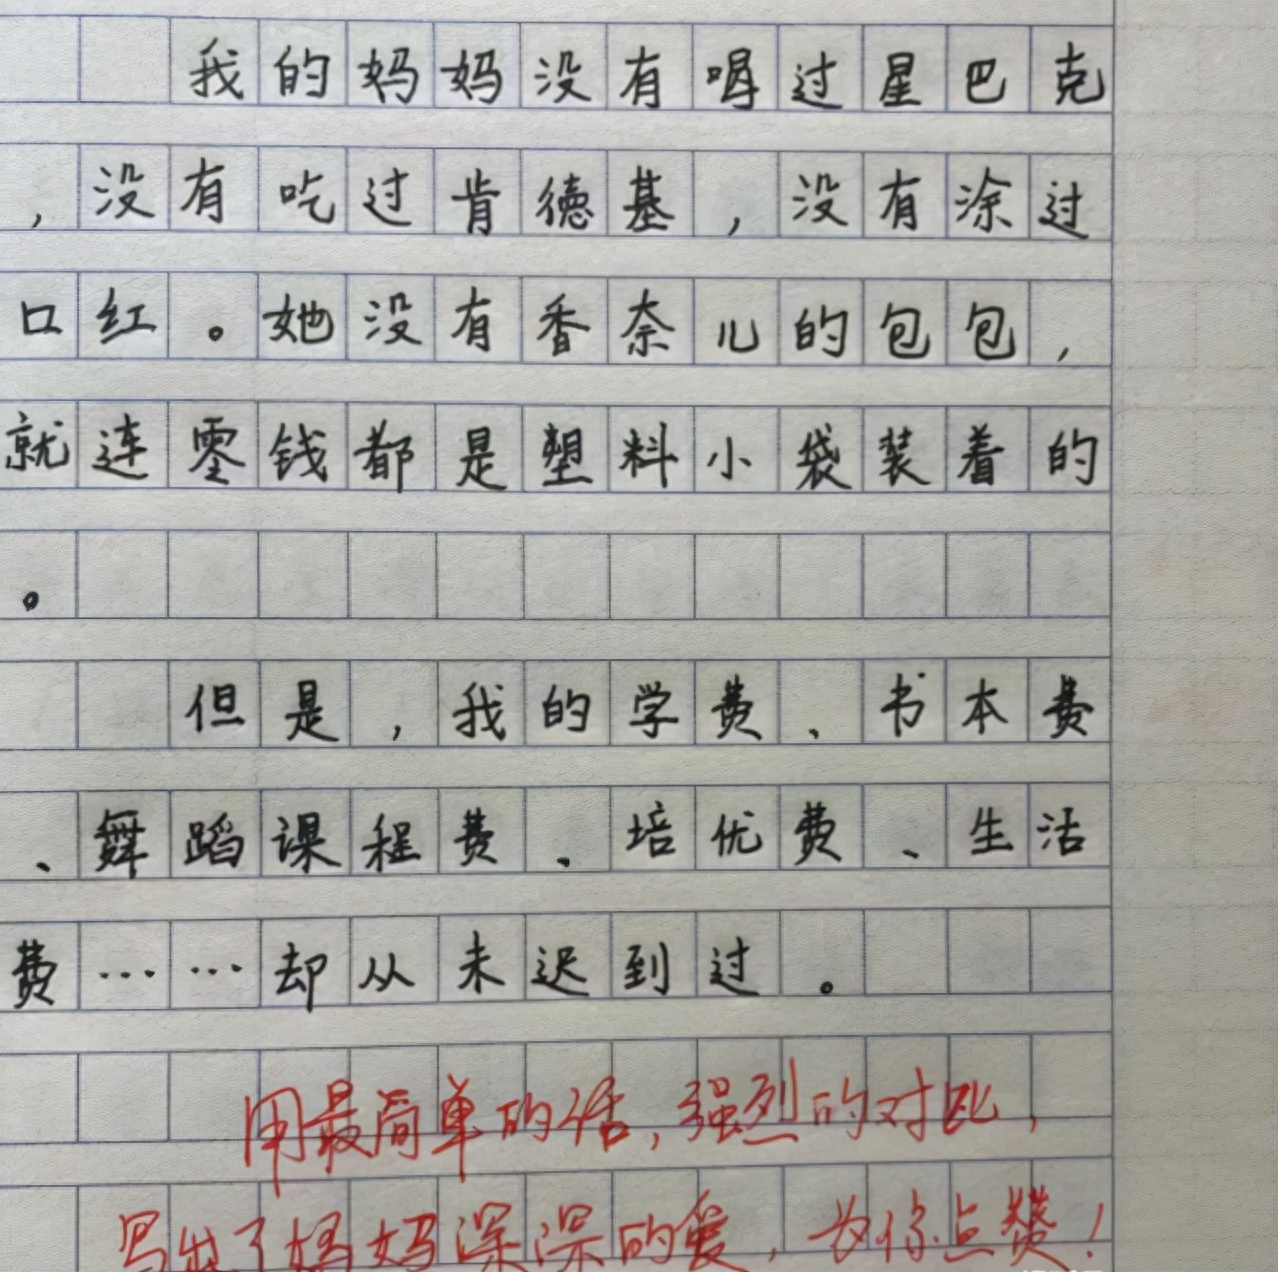 我的妈妈没有喝过星巴克
，没有吃过肯德基，没有涂过
口红。她没有香奈儿的包包，
就连零钱都是塑料小袋装着的
。
但是，我的学费、书本费
、舞蹈课程费、培优费、生活
费……却从未迟到过。
用最简单的话，强烈的对比，
写出了妈妈深深的爱，为你点赞！